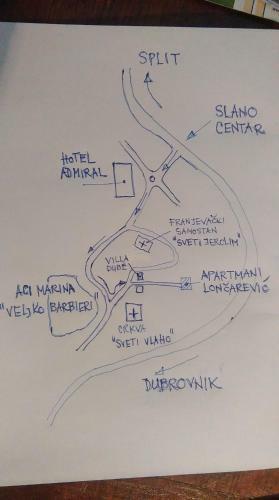 SPLIT
SLANO
CENTAR
HOTEL
ADMIRAL
FRANJEVAČKI
SAMOSTAN
"SVETI JEROLIM"
VILLA
DUDE
APARTMANI
LONČAREVIĆ
ACI MARINA
"VELJKO
BARBIERI"
CRKVA
"SVETI VLAHO"
DUBROVNIK